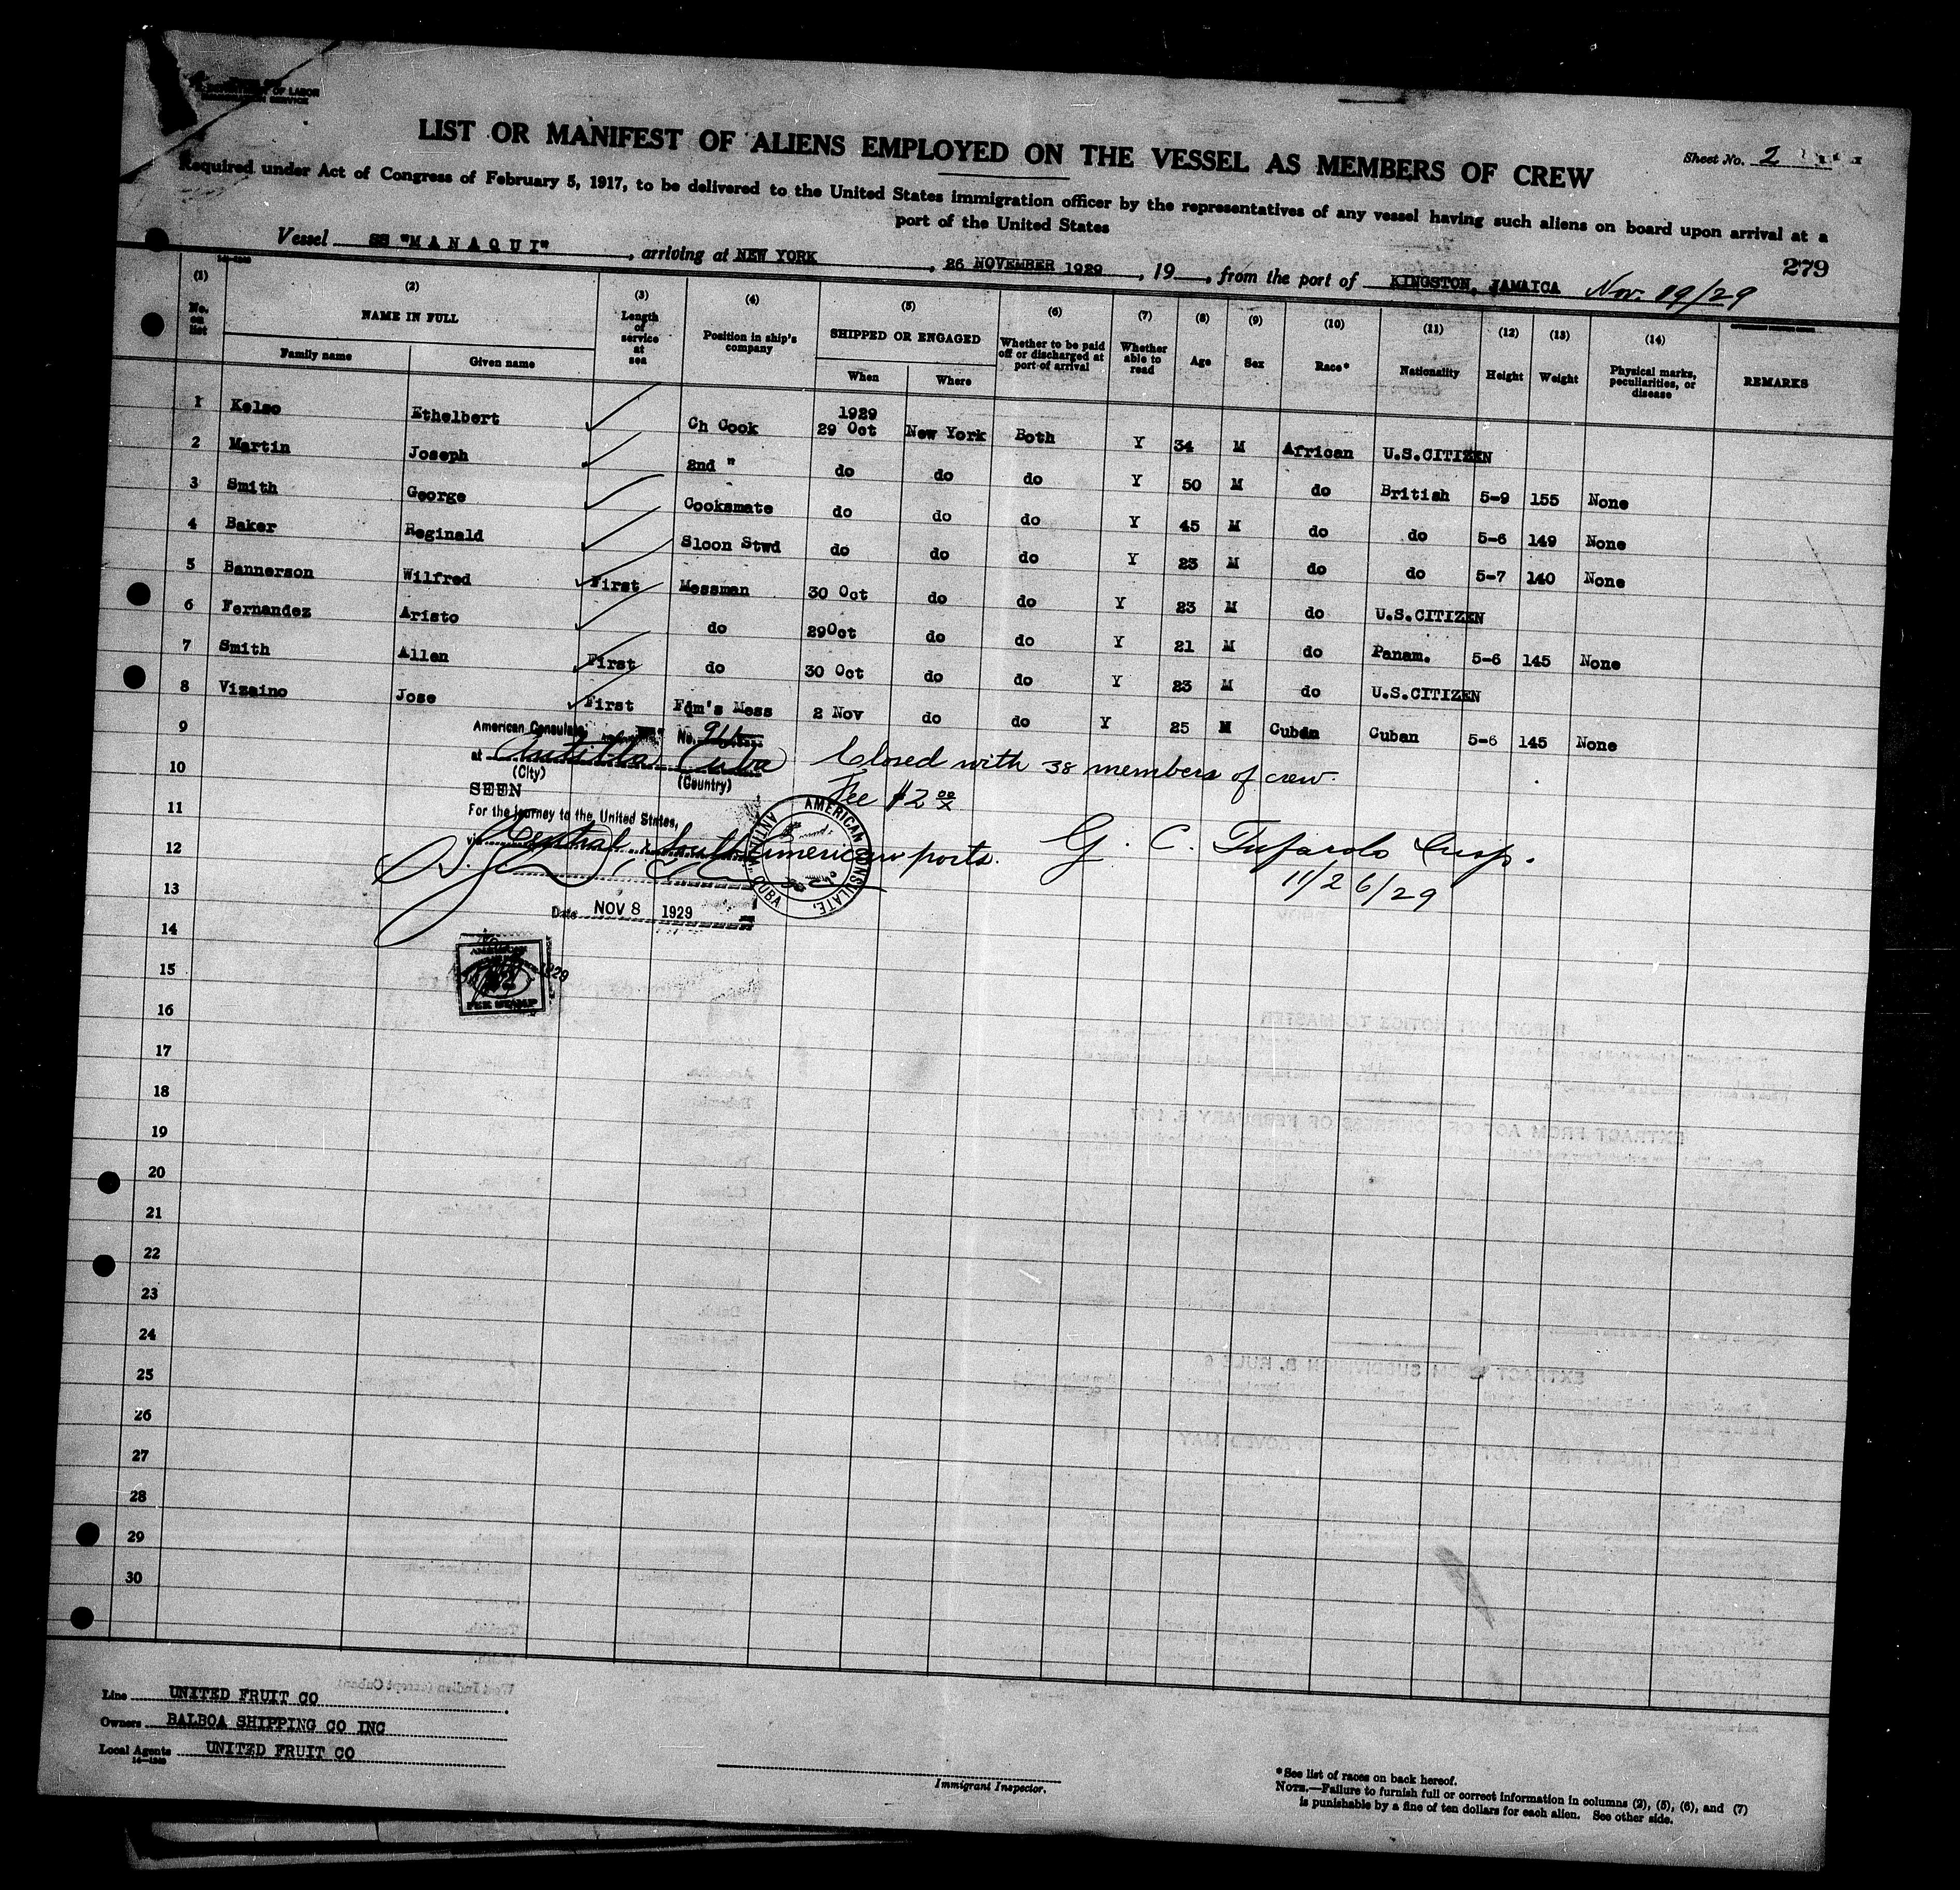 DEPARTMENT OF LABOR
LIST OR MANIFEST OF ALIENS EMPLOYED ON THE VESSEL AS MEMBERS OF CREW
Sheet No. 2
Required under Act of Congress of February 5, 1917, to be delivered to the United States immigration officer by the representatives of any vessel having such aliens on board upon arrival at a
port of the United States
279
Vessel SS "MANAQUI", arriving at NEW YORK, 26 NOVEMBER 1929, 19, from the port of KINGSTON, JAMAICA Nov. 19/29
(1) (2) (3) (4) (5) (6) (7) (8) (9) (10) (11) (12) (13) (14)
No. on list NAME IN FULL Length of service at sea Position in ship's company SHIPPED OR ENGAGED Whether to be paid off or discharged at port of arrival Whether able to read Age Sex Race* Nationality Height Weight Physical marks, peculiarities, or disease REMARKS
Family name Given name When Where
1 Kelso Ethelbert Ch Cook 1929 29 Oct New York Both Y 34 M African U.S.CITIZEN
2 Martin Joseph 2nd " do do do Y 50 M do British 5-9 155 None
3 Smith George Cooksmate do do do Y 45 M do do 5-6 149 None
4 Baker Reginald Sloon Stwd do do do Y 23 M do do 5-7 140 None
5 Bannerson Wilfred First Messman 30 Oct do do Y 23 M do U.S.CITIZEN
6 Fernandez Aristo do 29Oct do do Y 21 M do Panam. 5-6 145 None
7 Smith Allen First do 30 Oct do do Y 23 M do U.S.CITIZEN
8 Vizaino Jose First Fam's Mess 2 Nov do do Y 25 M Cuban Cuban 5-6 145 None
9
American Consulate, No.
at Antilla Cuba Closed with 38 members of crew.
10
(City) (Country)
SEEN Fee $2 00/x
11
For the journey to the United States,
via Central & South American ports. G. C.
12
AMERICAN CONSULATE, ANTILLA, CUBA
11/26/29
13
Date NOV 8 1929
14
AMERICAN
1929
FEE STAMP
15
16
17
18
19
20
21
22
23
24
25
26
27
28
29
30
Line UNITED FRUIT CO
Owners BALBOA SHIPPING CO INC
Local Agents UNITED FRUIT CO
14—1240
Immigrant Inspector.
*See list of races on back hereof.
NOTE.—Failure to furnish full or correct information in columns (2), (5), (6), and (7)
is punishable by a fine of ten dollars for each alien. See other side.